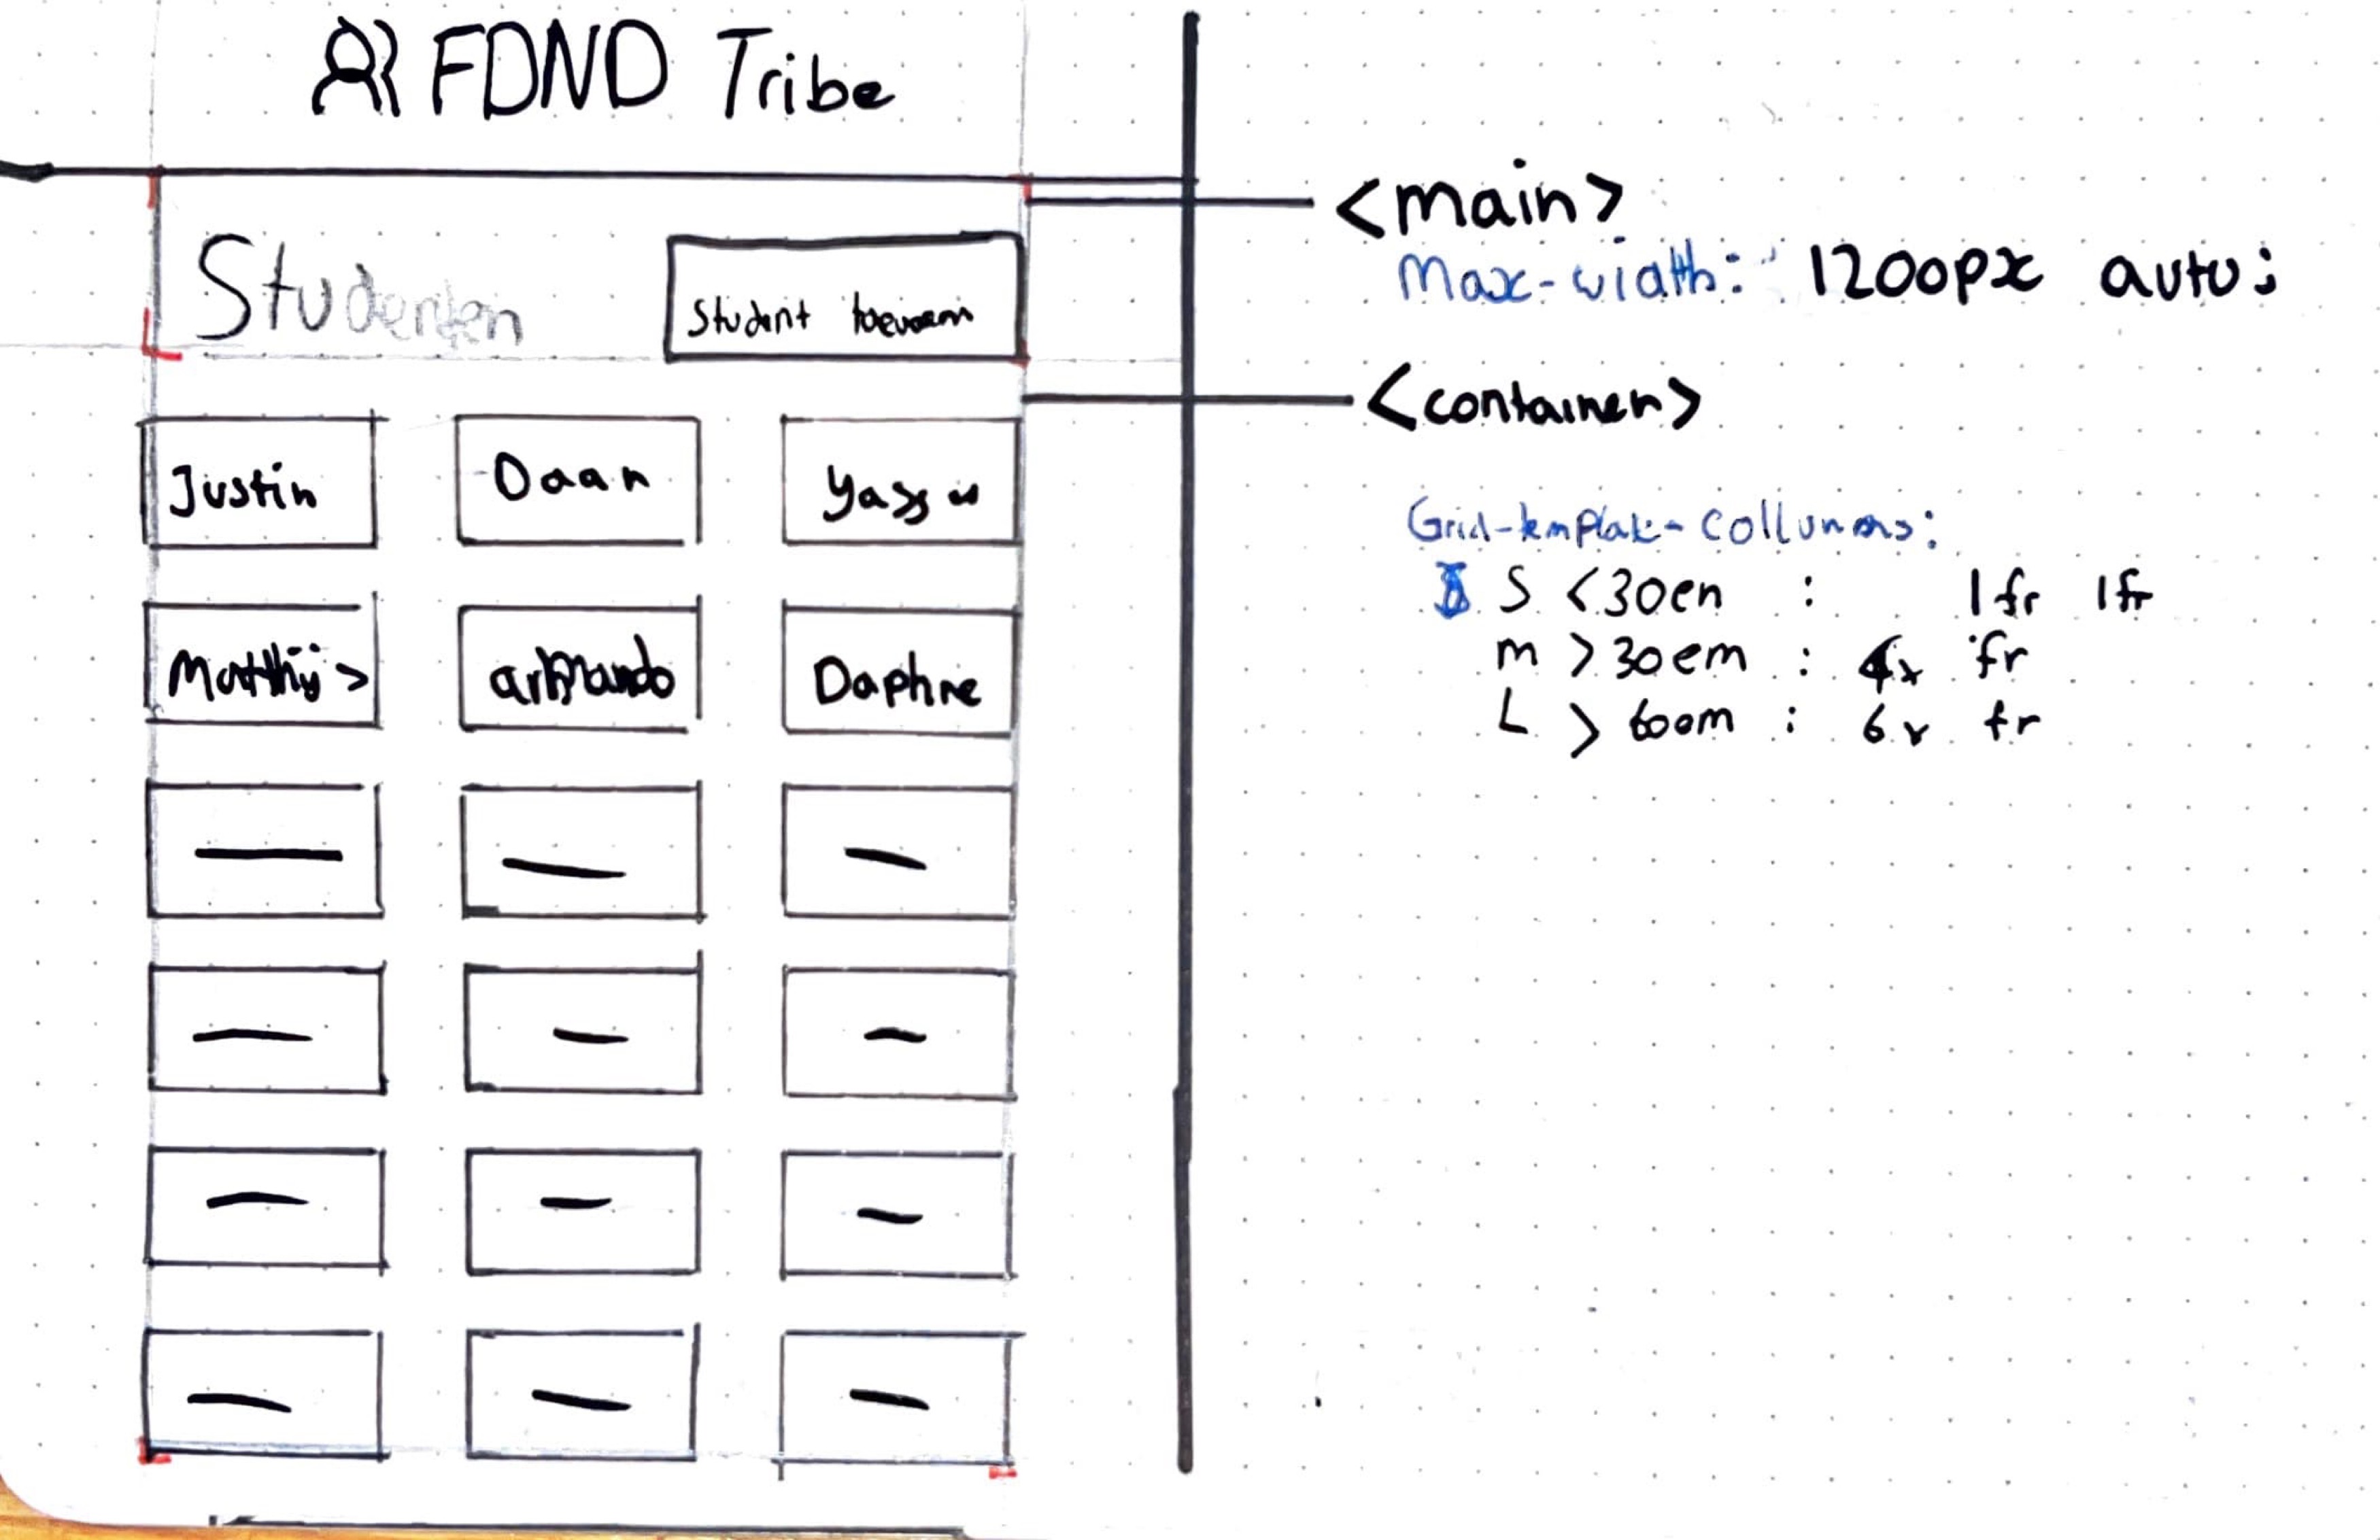 FDND Tribe
Studenten
Student toevoegen
Justin
Daan
Matthijs
Daphne
<main>
Max-width: 1200px auto;
<container>
Grid-template-collumns:
S <30em : 1fr 1fr
m >30em : 4x fr
L > 60em : 6x fr